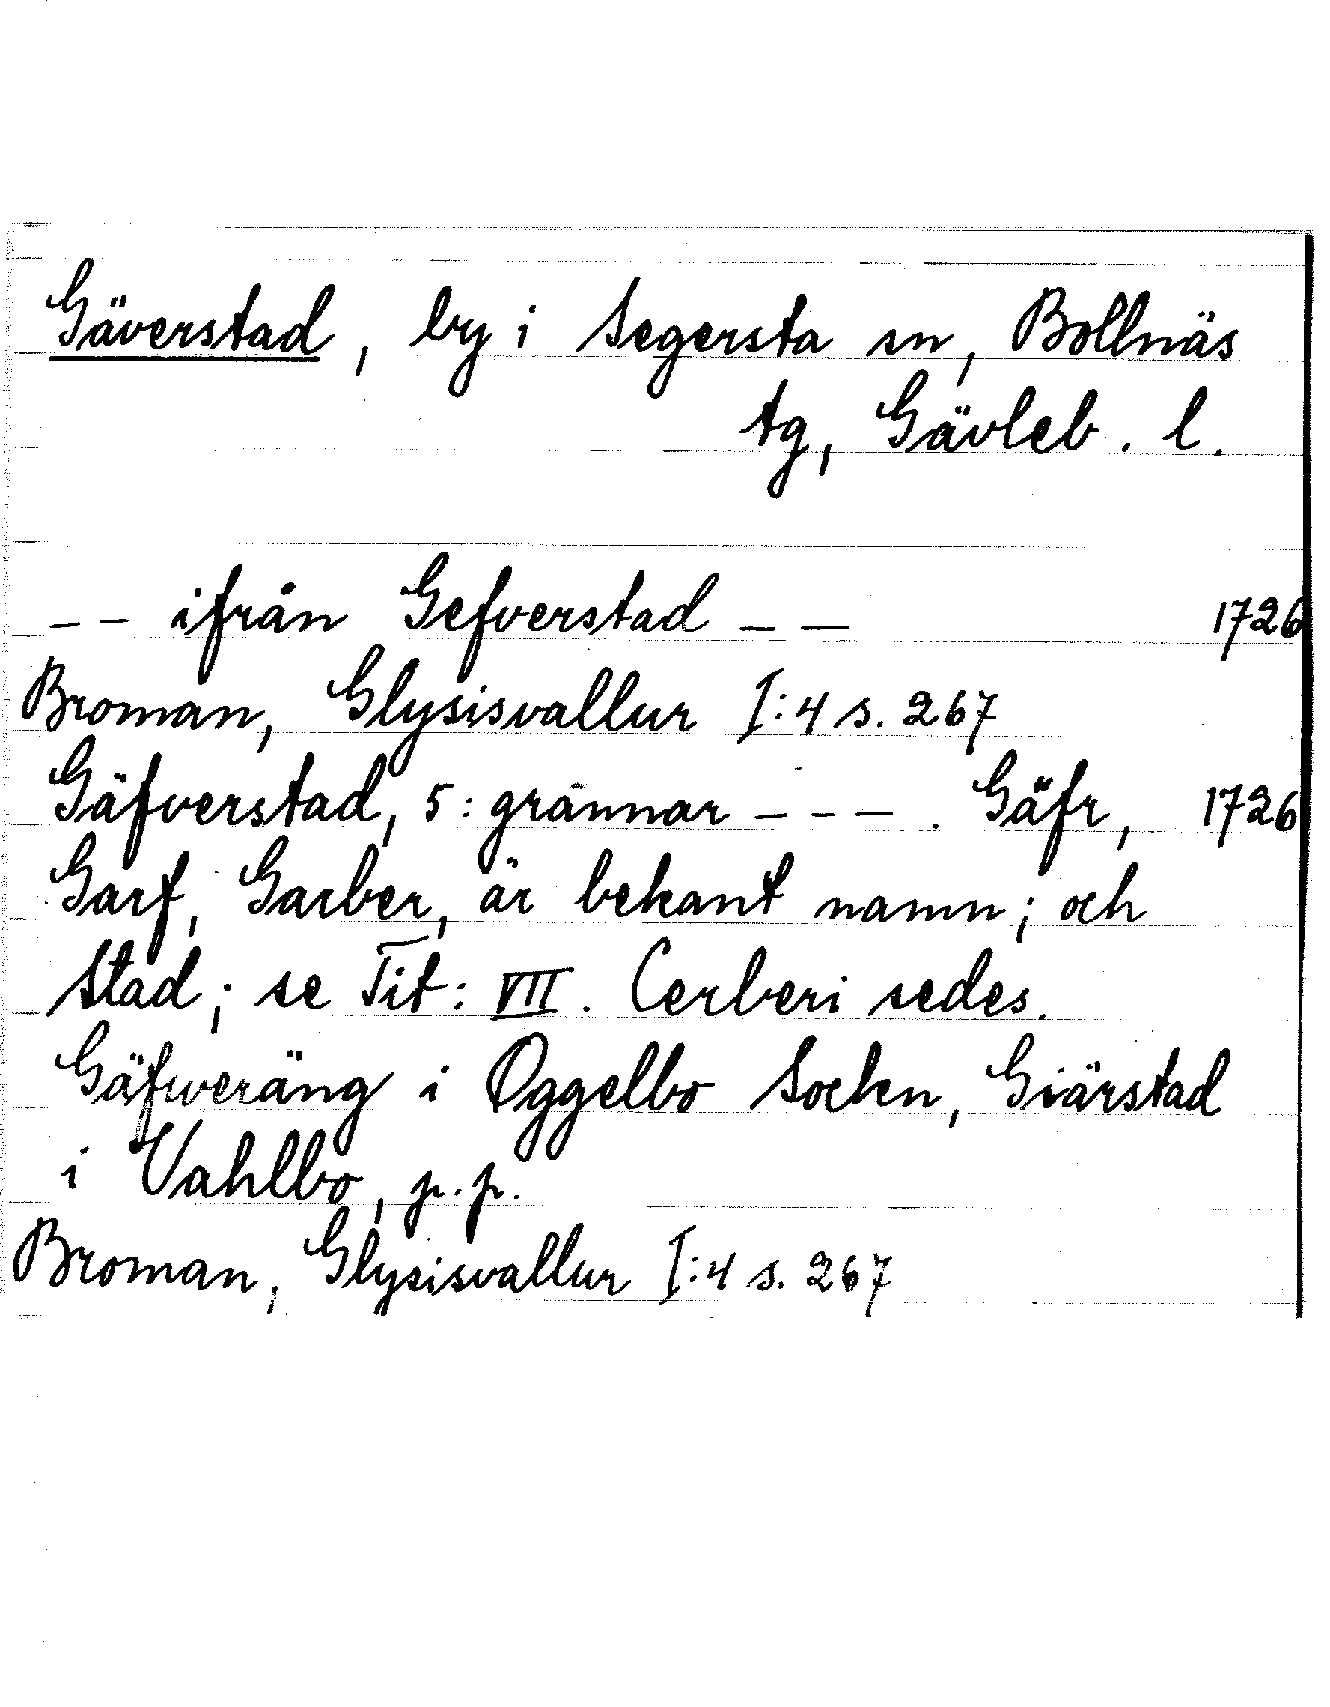 Gäverstad, by i Segersta sn, Bollnäs
tg, Gävleb. l.
-- ifrån Gefverstad -- 1726
Broman, Glysisvallur I:4 s. 267
Gäfverstad, 5: grannar --- . Gäfr, 1726
Garf, Garber, är bekant namn; och
Stad; se Tit: VII. Cerberi sedes.
Gäfweräng i Oggelbo Sockn, Giärstad
i Vahlbo, p.p.
Broman, Glysisvallur I:4 s. 267